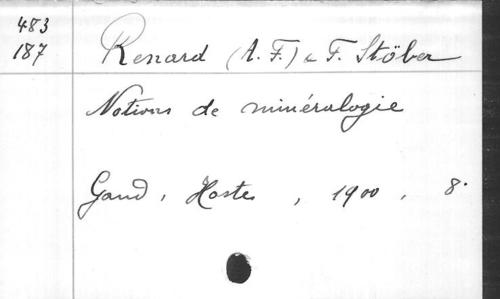 483
187
Renard (A. F.) & F. Stöber
Notions de minéralogie
Gand, Hoste, 1900, 8.